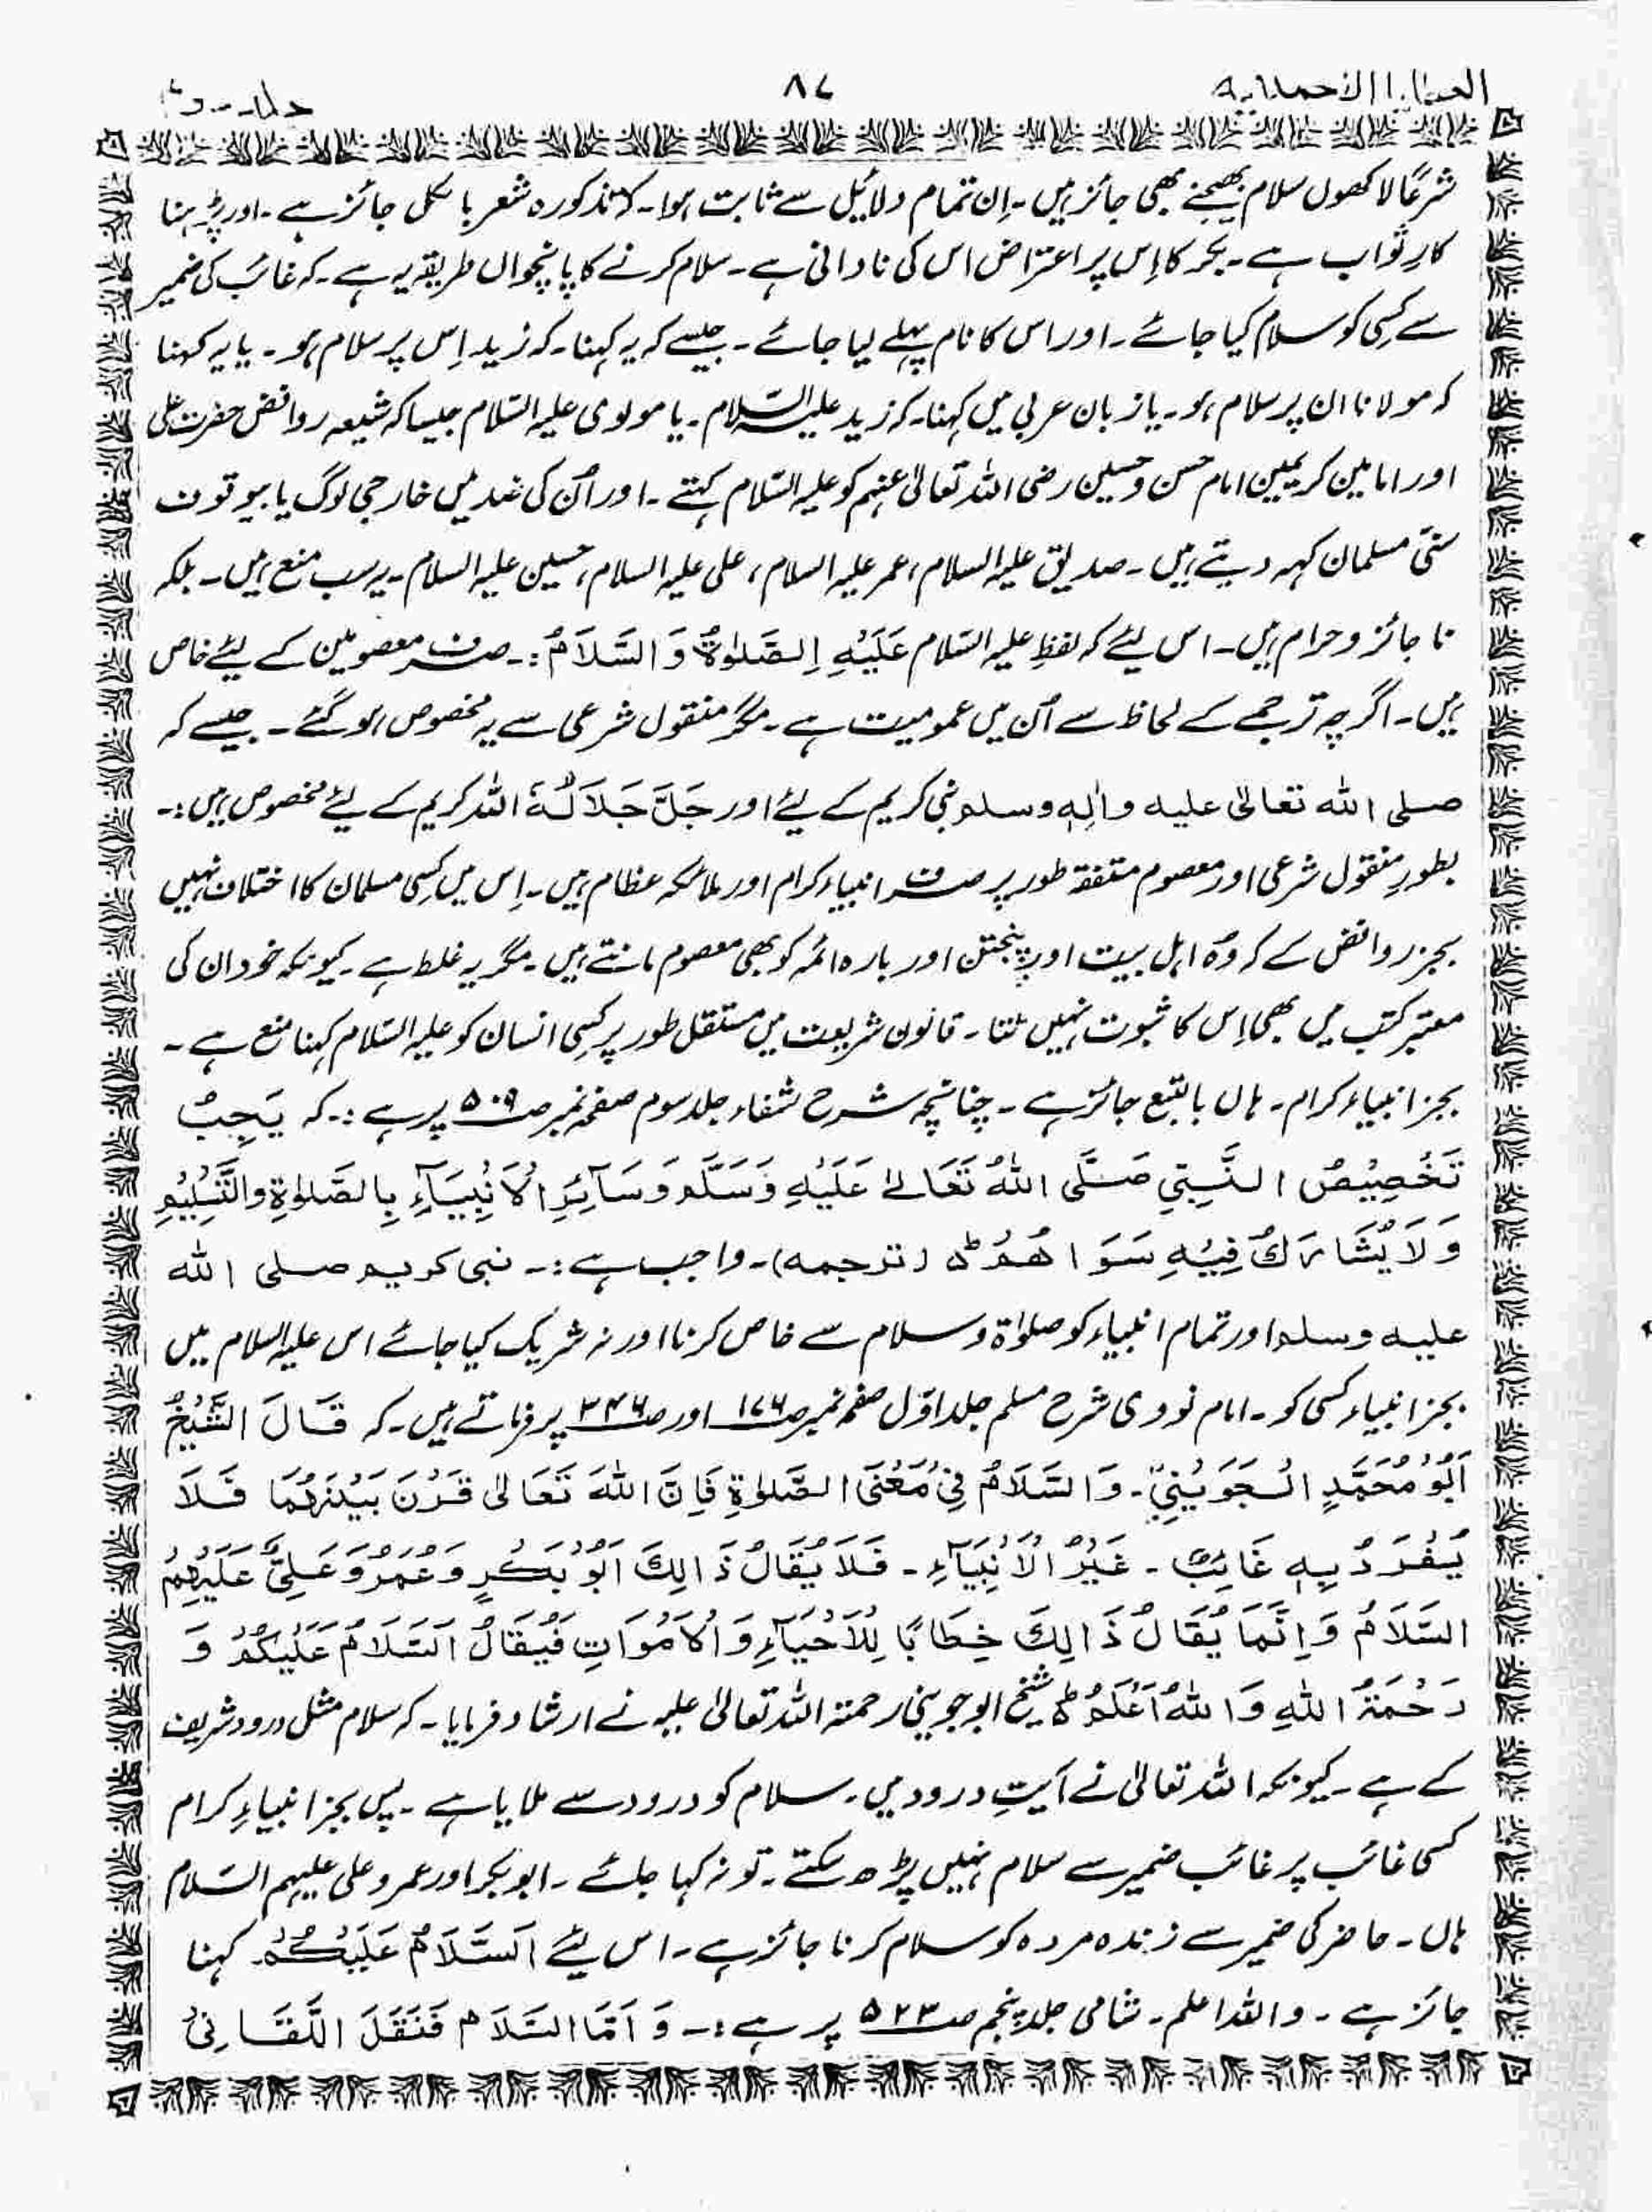 العطایا الاحمدیہ ۸۷ جلد دوم
شرعًا لاکھوں سلام بھیجنے بھی جائز ہیں۔ اِن تمام دلائیل سے ثابت ہوا۔ کہ مذکورہ شعر بالکل جائز ہے۔ اور پڑہنا
کارِ ثواب ہے۔ بکر کا اِس پر اعتراض اس کی نادانی ہے۔ سلام کرنے کا پانچواں طریقہ یہ ہے۔ کہ غائب کی ضمیر
سے کِسی کو سلام کیا جائے۔ اور اس کا نام پہلے لیا جائے۔ جیسے کہ یہ کہنا۔ کہ زید اِس پر سلام ہو۔ یا یہ کہنا
کہ مولانا ان پر سلام ہو۔ یا زبان عربی میں کہنا۔ کہ زید علیہ السّلام۔ یا مولوی علیہ السّلام جیسا کہ شیعہ روافض حضرت علی
اور امامین کریمین امام حسن و حسین رضی اللہ تعالیٰ عنہم کو علیہ السّلام کہتے۔ اور اُن کی ضد میں خارجی لوگ یا بیوقوف
سنّی مسلمان کہہ دیتے ہیں۔ صدیق علیہ السلام، عمر علیہ السلام، علی علیہ السلام، حسین علیہ السلام۔ یہ سب منع ہیں۔ بلکہ
نا جائز و حرام ہیں۔ اس لیٔے کہ لفظِ علیہ السّلام عَلَیْہِ الصَّلٰوۃُ وَالسَّلَامُ :۔ صرف معصومین کے لیٔے خاص
ہیں۔ اگرچہ ترجمے کے لحاظ سے اُن میں عمومیت ہے۔ مگر منقول شرعی سے یہ مخصوص ہو گئے۔ جیسے کہ
صلی اللہ تعالیٰ علیہ واٰلہٖ وسلم نبی کریم کے لیٔے اور جَلَّ جَلَالُہٗ اللہ کریم کے لیٔے مخصوص ہیں :۔
بطورِ منقول شرعی اور معصوم متفقہ طور پر صرف انبیاء کرام اور ملائکہ عظام ہیں۔ اِس میں کِسی مسلمان کا اختلاف نہیں
بجز روافض کے کہ وہ اہل بیت اور پنجتن اور بارہ ائمہ کو بھی معصوم مانتے ہیں۔ مگر یہ غلط ہے۔ کیونکہ خود ان کی
معتبر کتب میں بھی اِس کا ثبوت نہیں ملتا۔ قانون شریعت میں مستقل طور پر کسِی انسان کو علیہ السّلام کہنا منع ہے۔
بجز انبیاء کرام۔ ہاں بالتبع جائز ہے۔ چنانچہ شرح شفاء جلد سوم صفحہ نمبر صـ۵۰۹ پر ہے :۔ کہ یَجِبُ
تَخْصِیْصُ النَّبِیِّ صَلَّی اللہُ تَعَالیٰ عَلَیْہِ وَسَلَّمَ وَسَآئِرِ الْاَنْبِیَآءِ بِالصَّلٰوۃِ وَالتَّسْلِیْمِ
وَلَا یُشَارَکُ فِیْہِ سَوَاھُمْ ؕ (ترجمہ)۔ واجب ہے :۔ نبی کریم صلی اللہ
علیہ وسلم اور تمام انبیاء کو صلوٰۃ و سلام سے خاص کرنا اور نہ شریک کیا جائے اس علیہ السلام میں
بجز انبیاء کسی کو۔ امام نووی شرح مسلم جلد اوّل صفحہ نمبر صـ۱۷۶ اور صـ۳۴۶ پر فرماتے ہیں۔ کہ قَالَ الشَّیْخُ
اَبُوْ مُحَمَّدٍ الْجَوَیْنِیْ۔ وَالسَّلَامُ فِیْ مَعْنَی الصَّلٰوۃِ فَاِنَّ اللہَ تَعَالیٰ قَرَنَ بَیْنَہُمَا فَلَا
یُفْرَدُ بِہٖ غَائِبٌ۔ غَیْرُ الْاَنْبِیَآءِ۔ فَلَا یُقَالُ ذَالِکَ اَبُوْ بَکْرٍ وَعُمَرُ وَعَلِیٌّ عَلَیْہِمُ
السَّلَامُ وَاِنَّمَا یُقَالُ ذَالِکَ خِطَابًا لِلْاَحْیَآءِ وَالْاَمْوَاتِ فَیُقَالُ اَلسَّلَامُ عَلَیْکُمْ وَ
رَحْمَۃُ اللہِ وَاللہُ اَعْلَمُ ؕ شیخ ابو جوینی رحمتہ اللہ تعالیٰ علیہ نے ارشاد فرمایا۔ کہ سلام مثل درود شریف
کے ہے۔ کیونکہ اللہ تعالیٰ نے آیتِ درود میں۔ سلام کو درود سے ملایا ہے۔ پس بجز انبیاءِ کرام
کسی غائب پر غائب ضمیر سے سلام نہیں پڑھ سکتے۔ تو نہ کہا جائے۔ ابوبکر اور عمر و علی علیہم السّلام
ہاں۔ حاضر کی ضمیر سے زندہ مردہ کو سلام کرنا جائز ہے۔ اس لیٔے اَلسَّلَامُ عَلَیْکُمْ کہنا
جائز ہے۔ واللہ اعلم۔ شامی جلد پنجم صـ۵۲۳ پر ہے :۔ وَاَمَّا السَّلَامُ فَنَقَلَ اللَّقَانِیُ